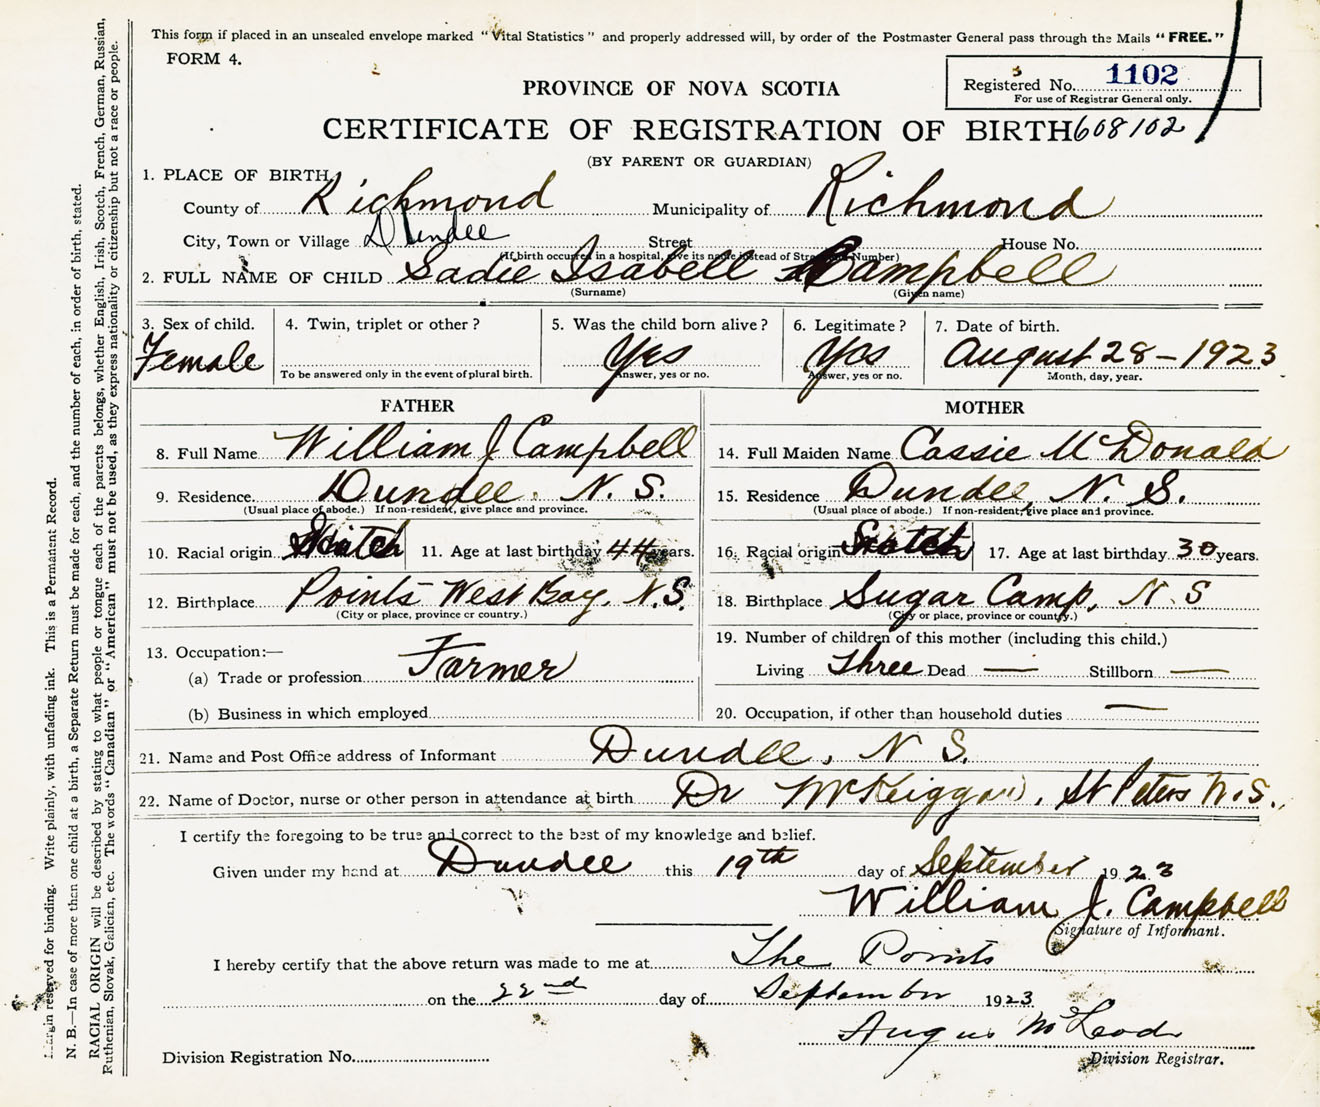 This form if placed in an unsealed envelope marked "Vital Statistics" and properly addressed will, by order of the Postmaster General pass through the Mails "FREE."
FORM 4.
Registered No. 1102
For use of Registrar General only.
PROVINCE OF NOVA SCOTIA
CERTIFICATE OF REGISTRATION OF BIRTH 608102
(BY PARENT OR GUARDIAN)
1. PLACE OF BIRTH,
County of Richmond Municipality of Richmond
City, Town or Village Dundee Street House No.
(If birth occurred in a hospital, give its name instead of Street and Number)
2. FULL NAME OF CHILD Sadie Isabell Campbell
(Surname) (Given name)
3. Sex of child. Female
4. Twin, triplet or other?
To be answered only in the event of plural birth.
5. Was the child born alive? Yes
Answer, yes or no.
6. Legitimate? Yes
Answer, yes or no.
7. Date of birth. August 28 - 1923
Month, day, year.
FATHER
8. Full Name William J Campbell
9. Residence Dundee. N. S.
(Usual place of abode.) If non-resident, give place and province.
10. Racial origin Scotch 11. Age at last birthday 44 years.
12. Birthplace Points West Bay, N.S.
(City or place, province or country.)
13. Occupation:—
(a) Trade or profession Farmer
(b) Business in which employed
MOTHER
14. Full Maiden Name Cassie McDonald
15. Residence Dundee, N. S.
(Usual place of abode.) If non-resident, give place and province.
16. Racial origin Scotch 17. Age at last birthday 30 years.
18. Birthplace Sugar Camp, N.S
(City or place, province or country.)
19. Number of children of this mother (including this child.)
Living Three Dead — Stillborn —
20. Occupation, if other than household duties —
21. Name and Post Office address of Informant Dundee, N S.
22. Name of Doctor, nurse or other person in attendance at birth Dr McKiggan, St Peters N.S.
I certify the foregoing to be true and correct to the best of my knowledge and belief.
Given under my hand at Dundee this 19th day of September 1923
William J. Campbell
Signature of Informant.
I hereby certify that the above return was made to me at The Points
on the 22nd day of September 1923
Angus McLeod
Division Registrar.
Division Registration No.
Margin reserved for binding. Write plainly, with unfading ink. This is a Permanent Record.
N. B.—In case of more than one child at a birth, a Separate Return must be made for each, and the number of each, in order of birth, stated.
RACIAL ORIGIN will be described by stating to what people or tongue each of the parents belongs, whether English, Irish, Scotch, French, German, Russian,
Ruthenian, Slovak, Galician, etc. The words "Canadian" or "American" must not be used, as they express nationality or citizenship but not a race or people.